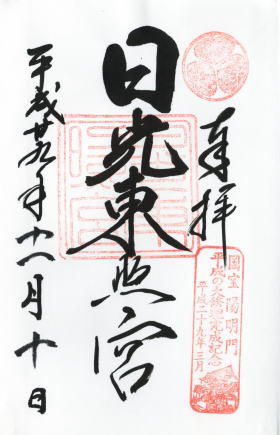 奉拝
国宝 陽明門
平成の大修理完成記念
平成二十九年三月
日光東照宮
平成廿九年十一月十日